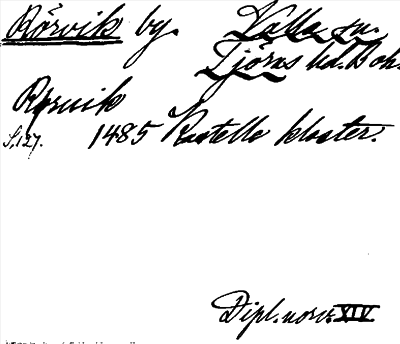 Rörvik by. Valla sn.
Tjörns hd. Boh.
Rørvik
S. 127. 1485 Kastelle kloster.
Dipl. norv. XIV.